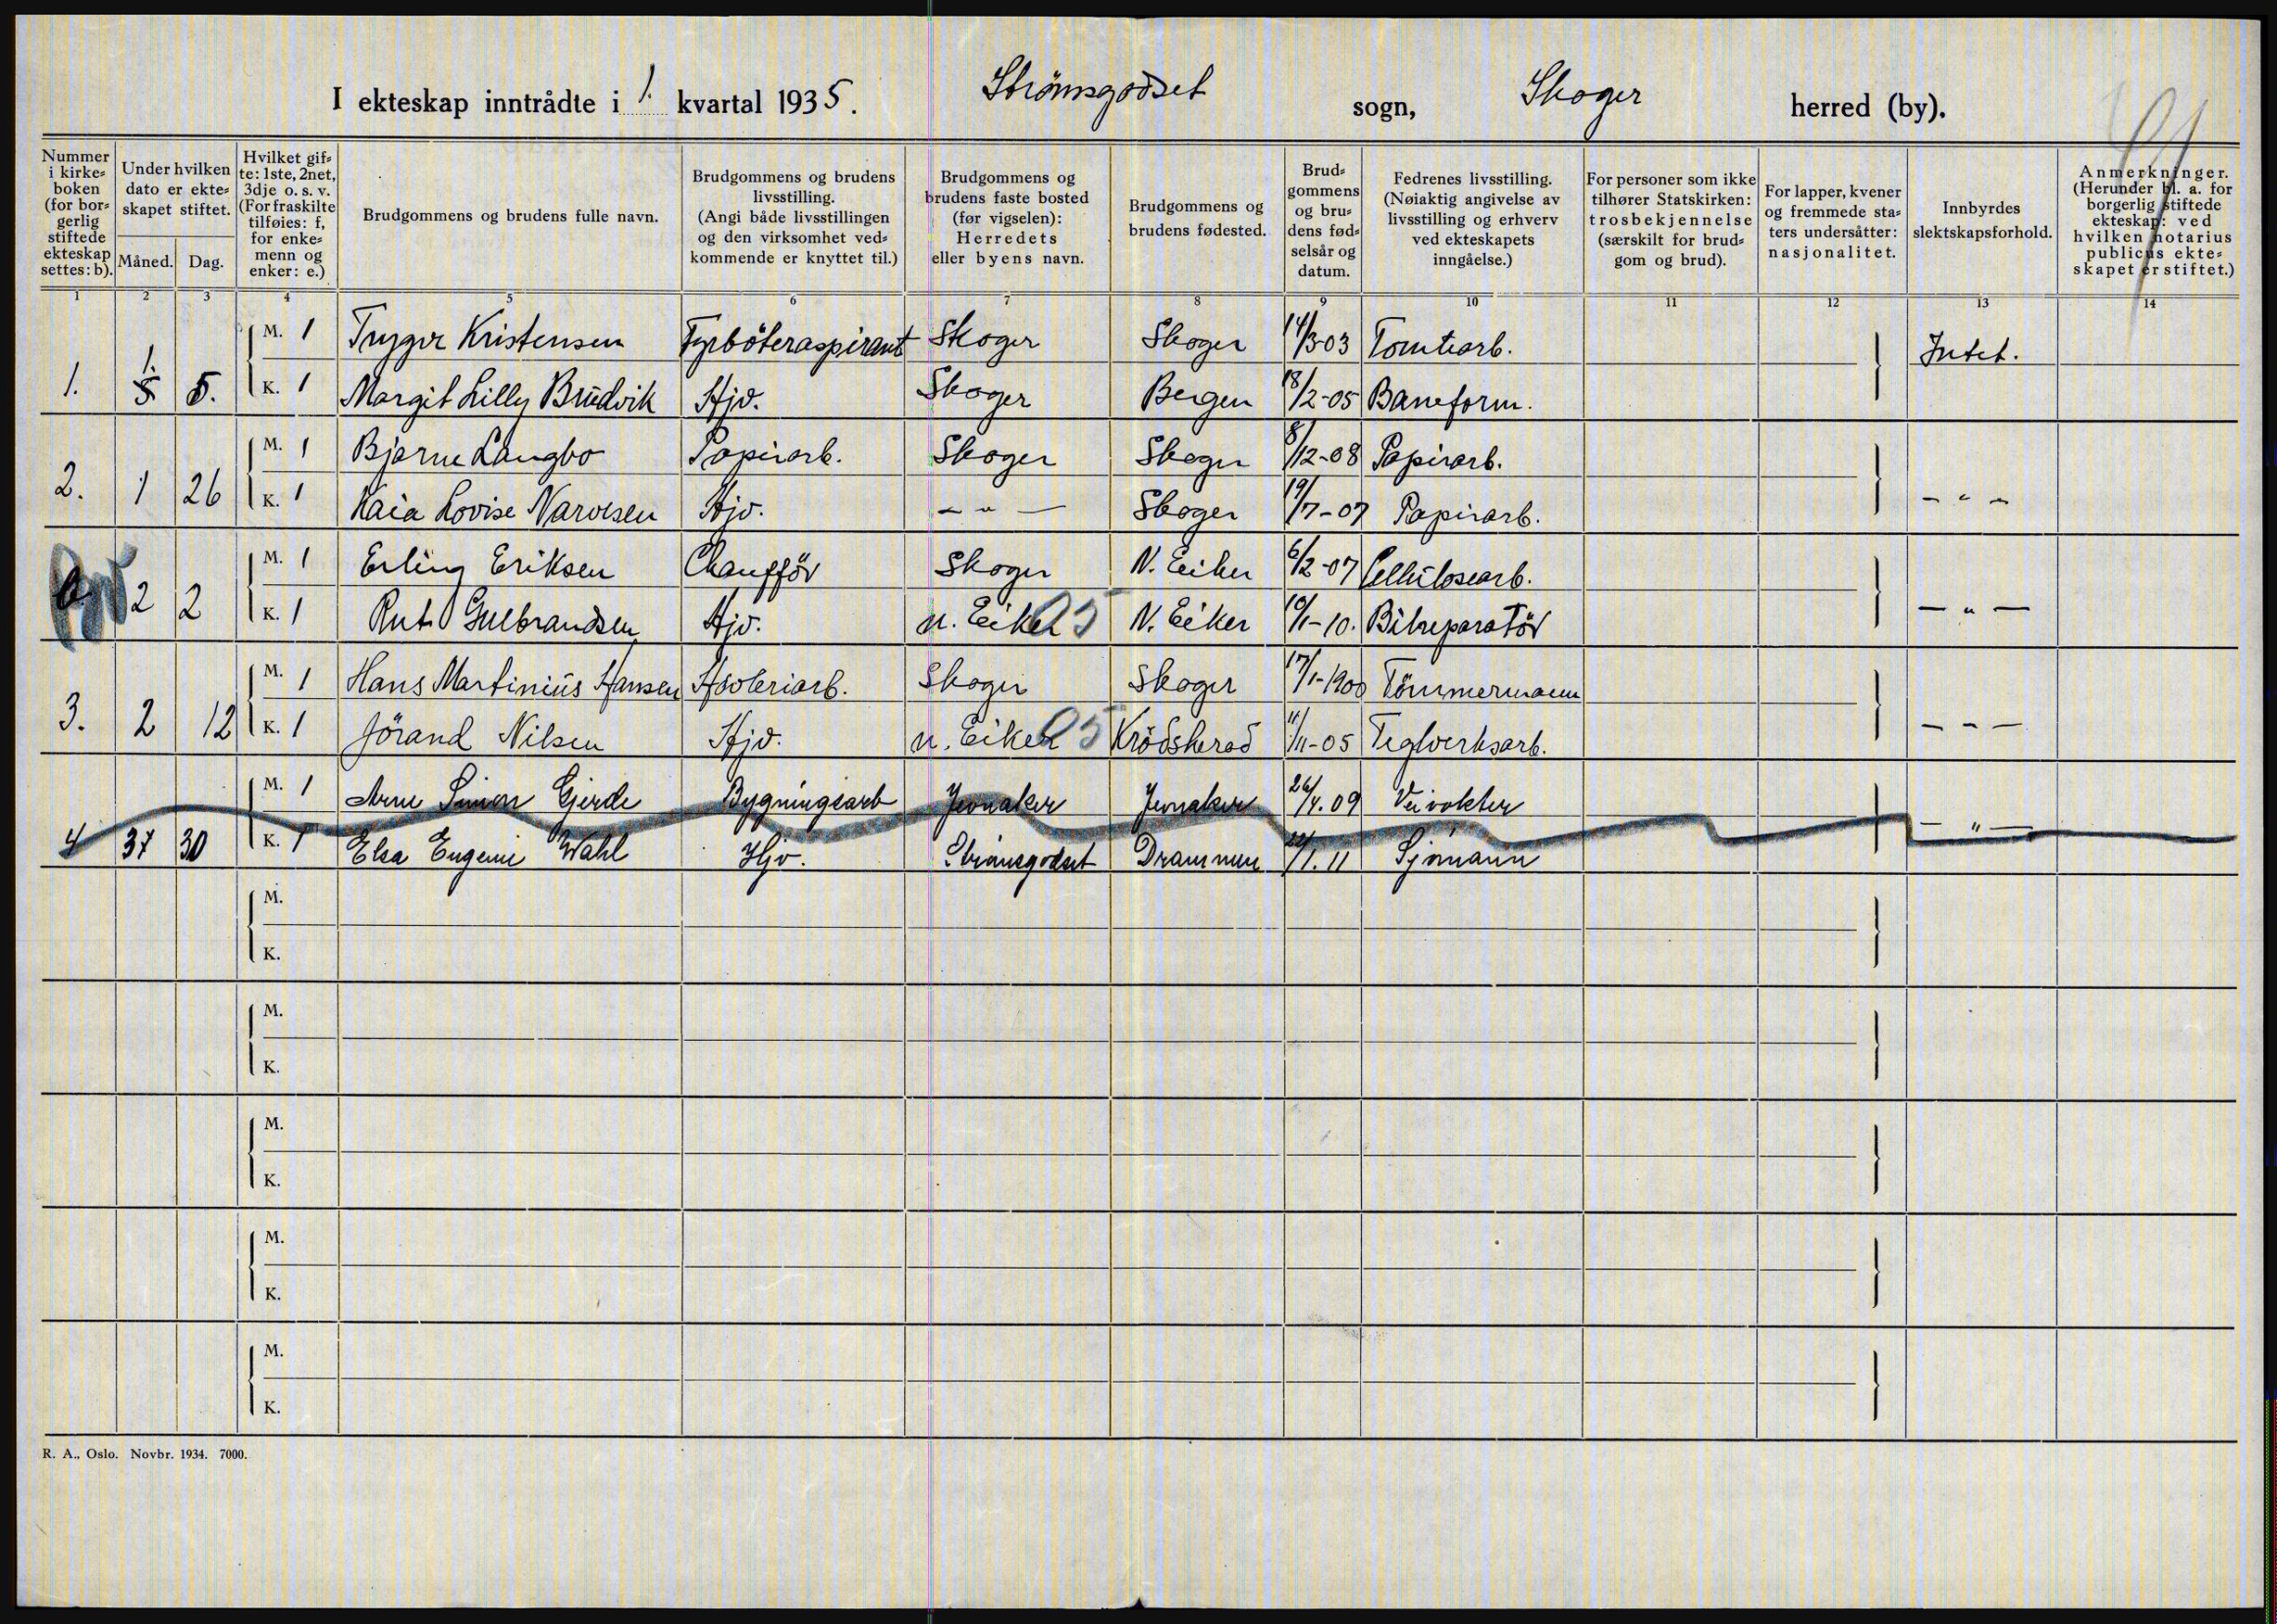 I ekteskap inntrådte i 1. kvartal 1935. Strömsgodset sogn, Skoger herred (by).
Nummer i kirke-boken (for bor-gerlig stiftede ekteskap settes: b).
Under hvilken dato er ekte-skapet stiftet.
Måned.
Dag.
Hvilket gif-te: 1ste, 2net, 3dje o. s. v. (For fraskilte tilføies: f, for enke-menn og enker: e.)
Brudgommens og brudens fulle navn.
Brudgommens og brudens livsstilling. (Angi både livsstillingen og den virksomhet ved-kommende er knyttet til.)
Brudgommens og brudens faste bosted (før vigselen): Herredets eller byens navn.
Brudgommens og brudens fødested.
Brud-gommens og bru-dens fød-selsår og datum.
Fedrenes livsstilling. (Nøiaktig angivelse av livsstilling og erhverv ved ekteskapets inngåelse.)
For personer som ikke tilhører Statskirken: trosbekjennelse (særskilt for brud-gom og brud).
For lapper, kvener og fremmede sta-ters undersåtter: nasjonalitet.
Innbyrdes slektskapsforhold.
Anmerkninger. (Herunder bl. a. for borgerlig stiftede ekteskap: ved hvilken notarius publicus ekte-skapet er stiftet.)
1 2 3 4 5 6 7 8 9 10 11 12 13 14
M. 1 Trygve Kristensen Fyrböteraspirant Skoger Skoger 14/3-03 Tomtearb. Intet.
1. 1. 5. K. 1 Margit Lilly Brudvik Hjv. Skoger Bergen 18/2-05 Baneform.
M. 1 Bjarne Langbo Papirarb. Skoger Skoger 8/12-08 Papirarb.
2. 1 26 K. 1 Kaia Lovise Narvesen Hjv. - " - Skoger 19/7-07 Papirarb. - " -
M. 1 Erling Eriksen Chaufför Skoger N. Eiker 6/2-07 Cellulosearb.
b. 2 2 K. 1 Rut Gulbrandsen Hjv. N. Eiker 05 N. Eiker 10/1-10. Bilreparatör - " -
M. 1 Hans Martinius Hansen Høvleriarb. Skoger Skoger 17/1-1900 Tömmermann
3. 2 12 K. 1 Jörand Nilsen Hjv. N. Eiker 05 Krödsherad 11/11-05 Teglverksarb. - " -
M. 1 Arne Simon Gjerde Bygningsarb Jevnaker Jevnaker 26/4.09 Veivokter
4 3 30 K. 1 Elsa Eugenie Wahl Hjv. Strömsgodset Drammen 22/1.11 Sjömann - " -
M.
K.
M.
K.
M.
K.
M.
K.
M.
K.
R. A., Oslo. Novbr. 1934. 7000.